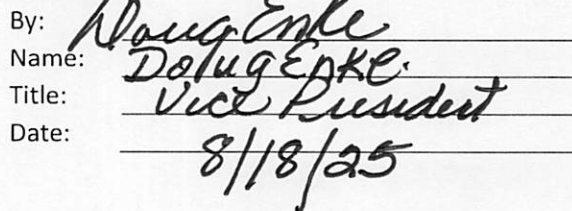 By: Doug Enke
Name: Doug Enke.
Title: Vice President
Date: 8/18/25